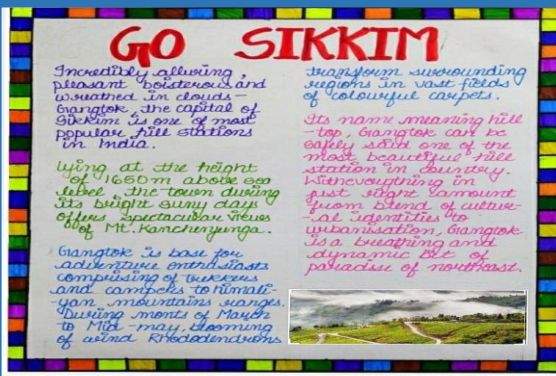 GO SIKKIM
Incredibly alluring,
pleasant boisterous and
wreathed in clouds-
Gangtok, the capital of
Sikkim is one of most
popular hill stations
in India.
Lying at the height
of 1650m above sea
level, the town during
its bright suny days
offers spectacular views
of Mt. Kanchenjunga.
Gangtok is base for
adventure enthusiasts
comprising of trekkers
and campers to himali
-yan mountains ranges.
During monts of March
to Mid-may, blooming
of wind Rhododendrons
transform surrounding
regions in vast fields
of colourful carpets.
Its name meaning hill
-top, Gangtok can be
safely said one of the
most beautiful hill
station in country.
With everything in
just right amount
from blend of cultur-
-ial identities to
urbanisation, Gangtok
is a breathing and
dynamic bit of
paradise of northeast.